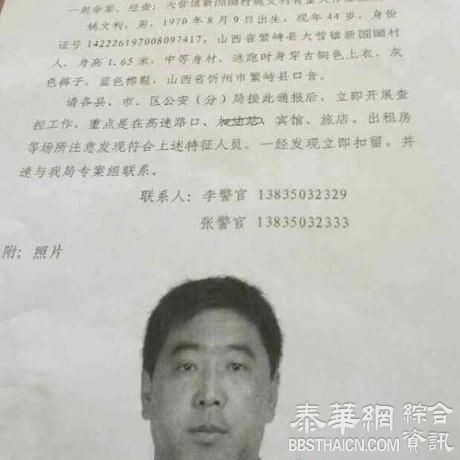 一起命案，经查：大营镇新圐圙村姚文利有重大作案
姚文利，男，1970年8月9日出生，现年44岁，身份
证号142226197008097417，山西省繁峙县大营镇新圐圙村
人，身高1.65米，中等身材，逃跑时身穿古铜色上衣，灰
色裤子，蓝色棉鞋，山西省忻州市繁峙县口音。
请各县、市、区公安（分）局接此通报后，立即开展查
控工作，重点是在高速路口、加油站、宾馆、旅店、出租房
等场所注意发现符合上述特征人员。一经发现立即扣留，并
速与我局专案组联系。
联系人：李警官 13835032329
张警官 13835032333
附；照片
泰華網 綜合資訊
BBSTHAICN.COM